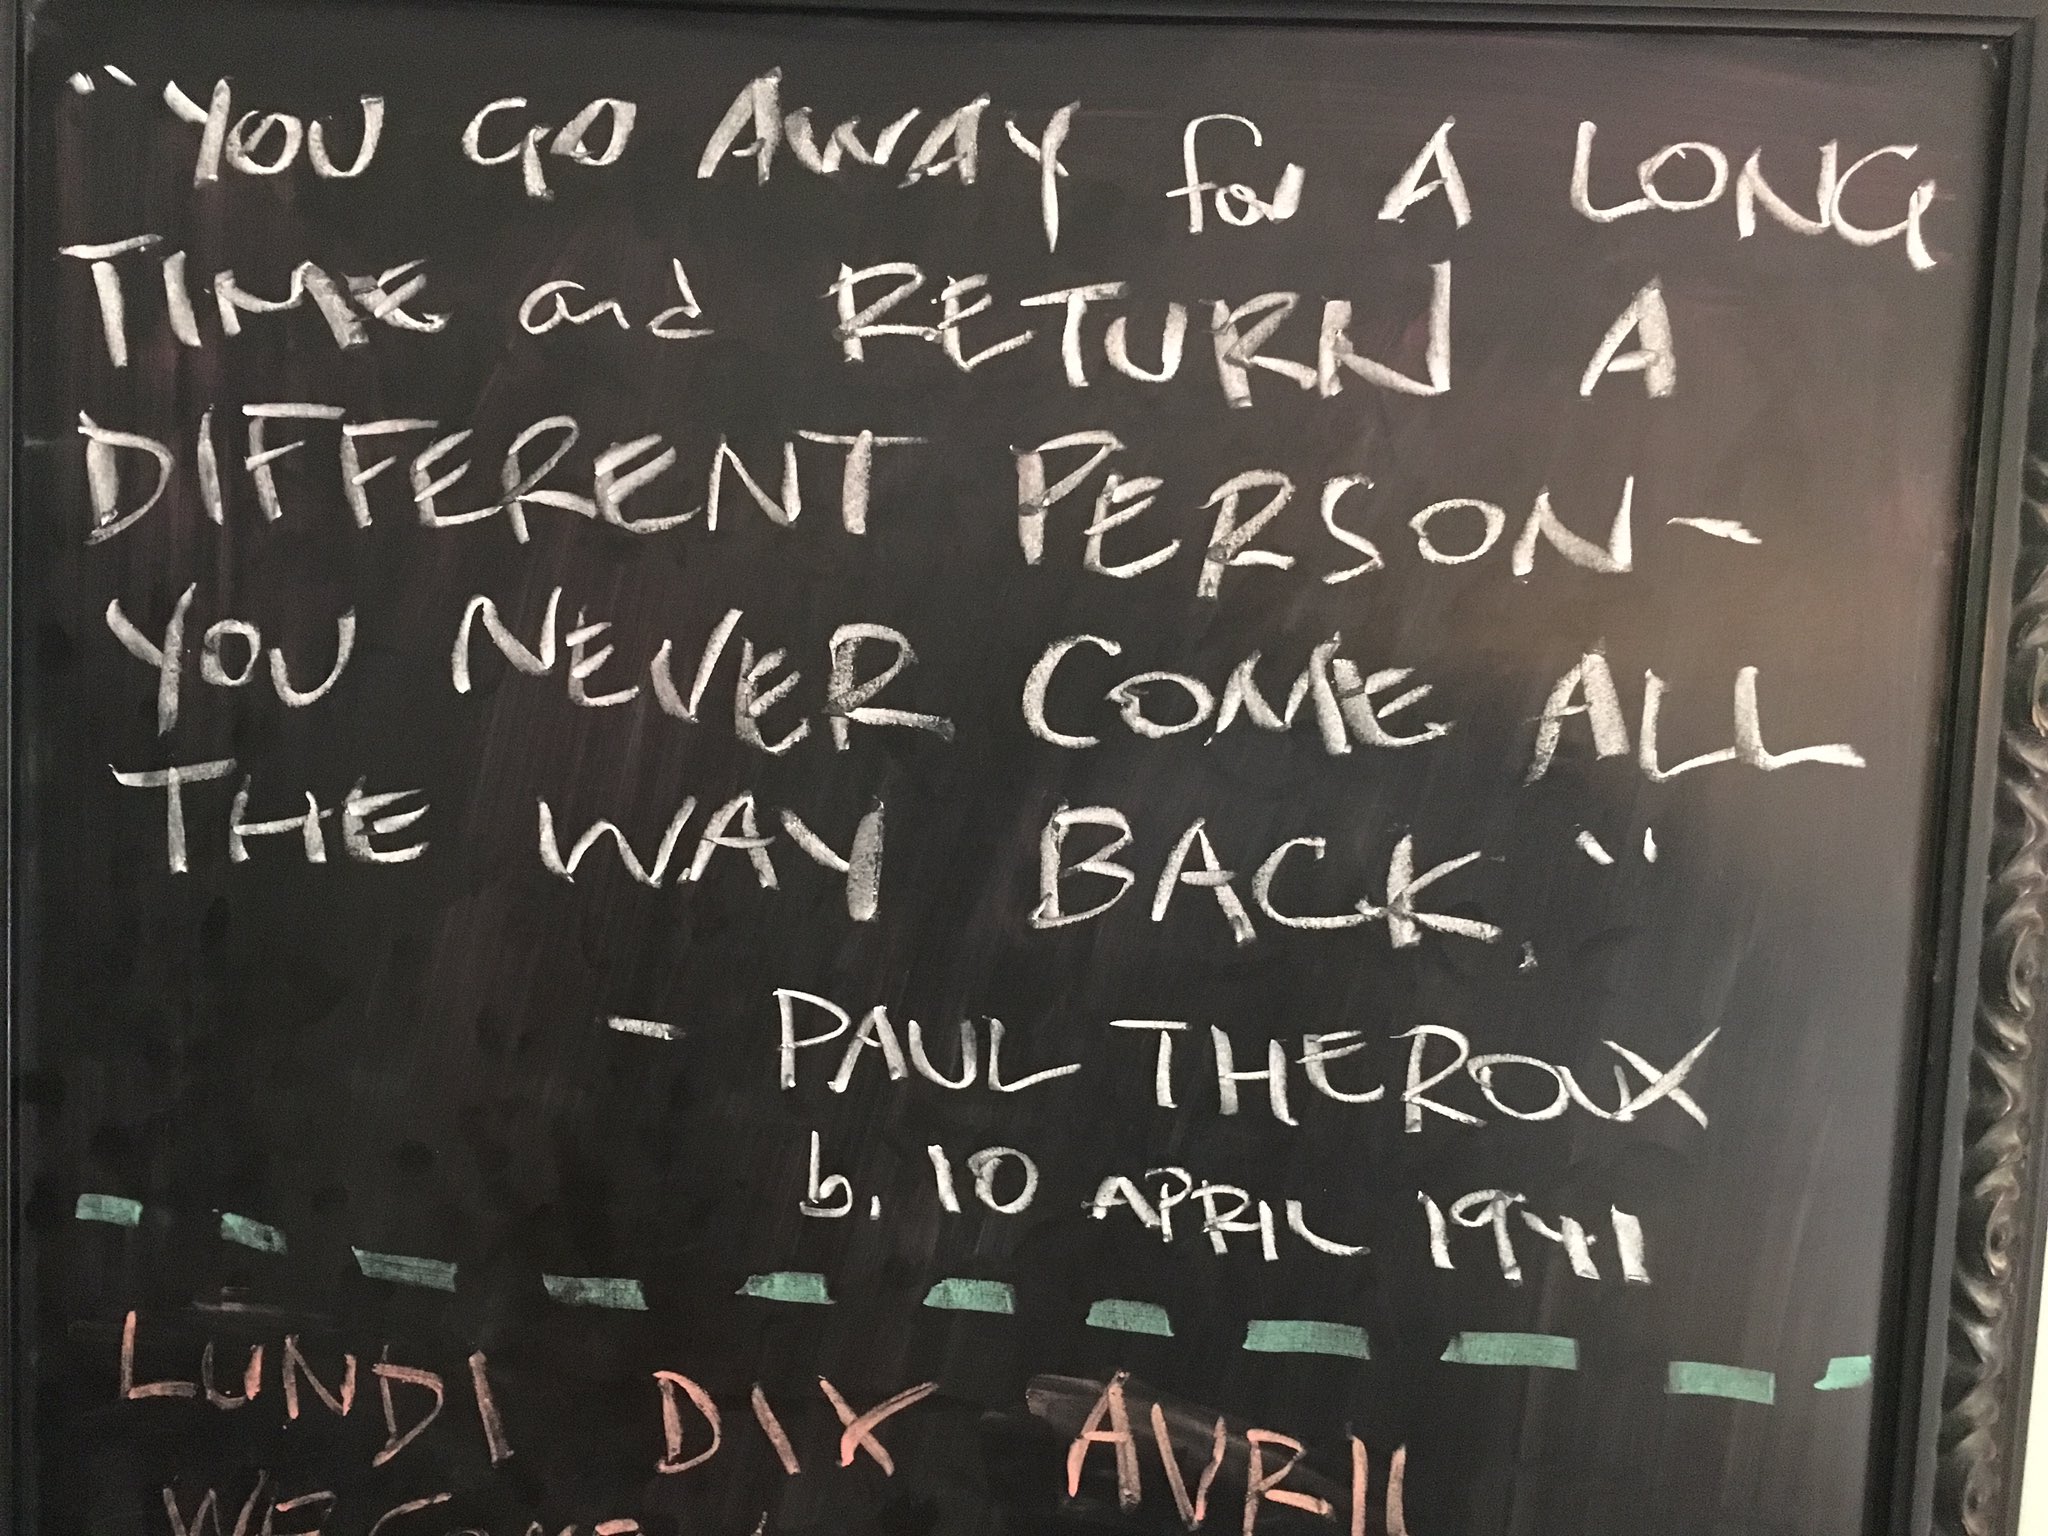 "YOU GO AWAY for A LONG
TIME and RETURN A
DIFFERENT PERSON-
YOU NEVER COME ALL
THE WAY BACK."
- PAUL THEROUX
b. 10 APRIL 1941
LUNDI DIX AVRIL